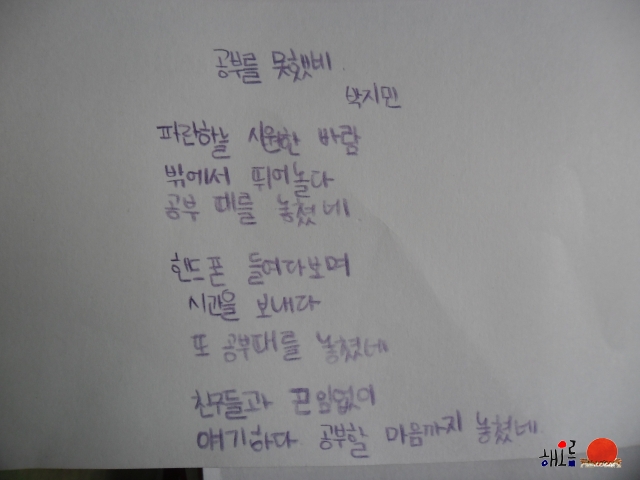 공부를 못했네.
박지민
파란하늘 시원한 바람
밖에서 뛰어놀다
공부 때를 놓쳤네
핸드폰 들여다보며
시간을 보내다
또 공부때를 놓쳤네
친구들과 끈임없이
얘기하다 공부할 마음까지 놓쳤네.
해오름